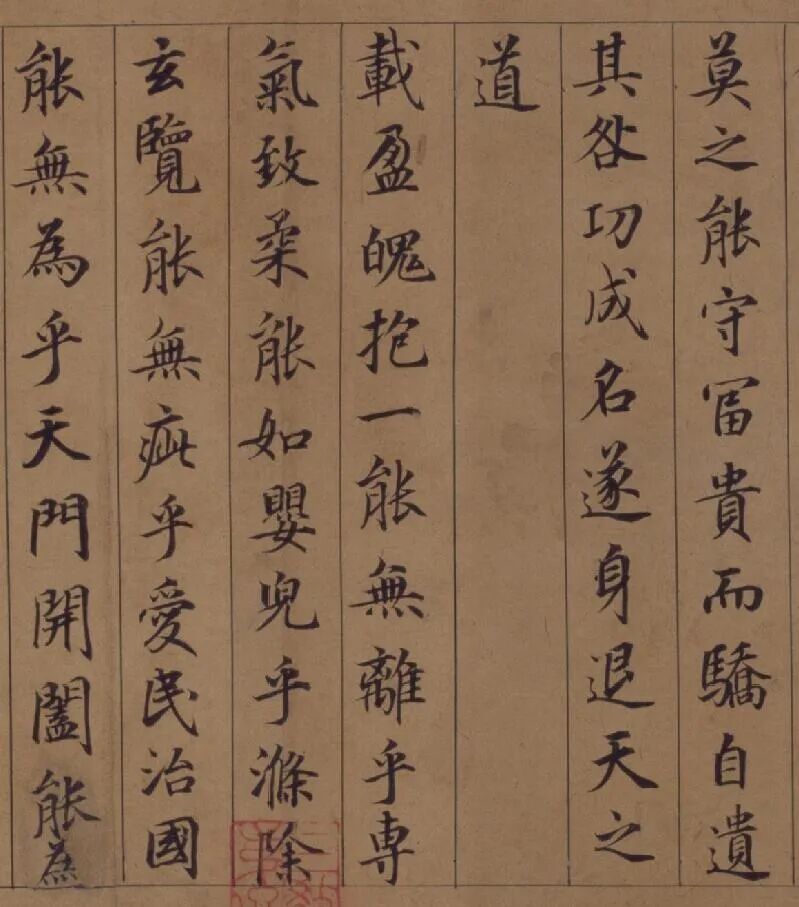 莫之能守冨貴而驕自遺
其咎功成名遂身退天之
道
載盈魄抱一能無離乎專
氣致柔能如嬰兒乎滌除
玄覽能無疵乎愛民治國
能無為乎天門開闔能為